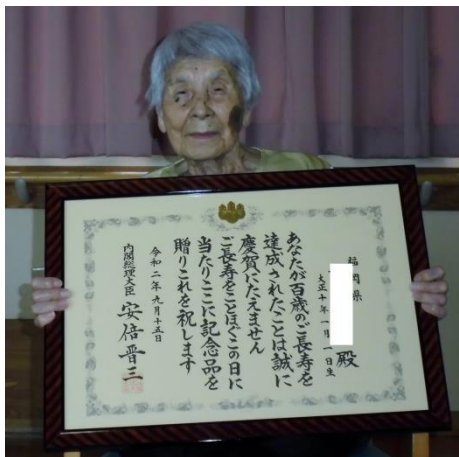 福岡県
殿
大正十年一月一日生
あなたが百歳のご長寿を
達成されたことは誠に
慶賀にたえません
ご長寿をことほぐこの日に
当たりここに記念品を
贈りこれを祝します
令和二年九月十五日
内閣総理大臣 安倍晋三